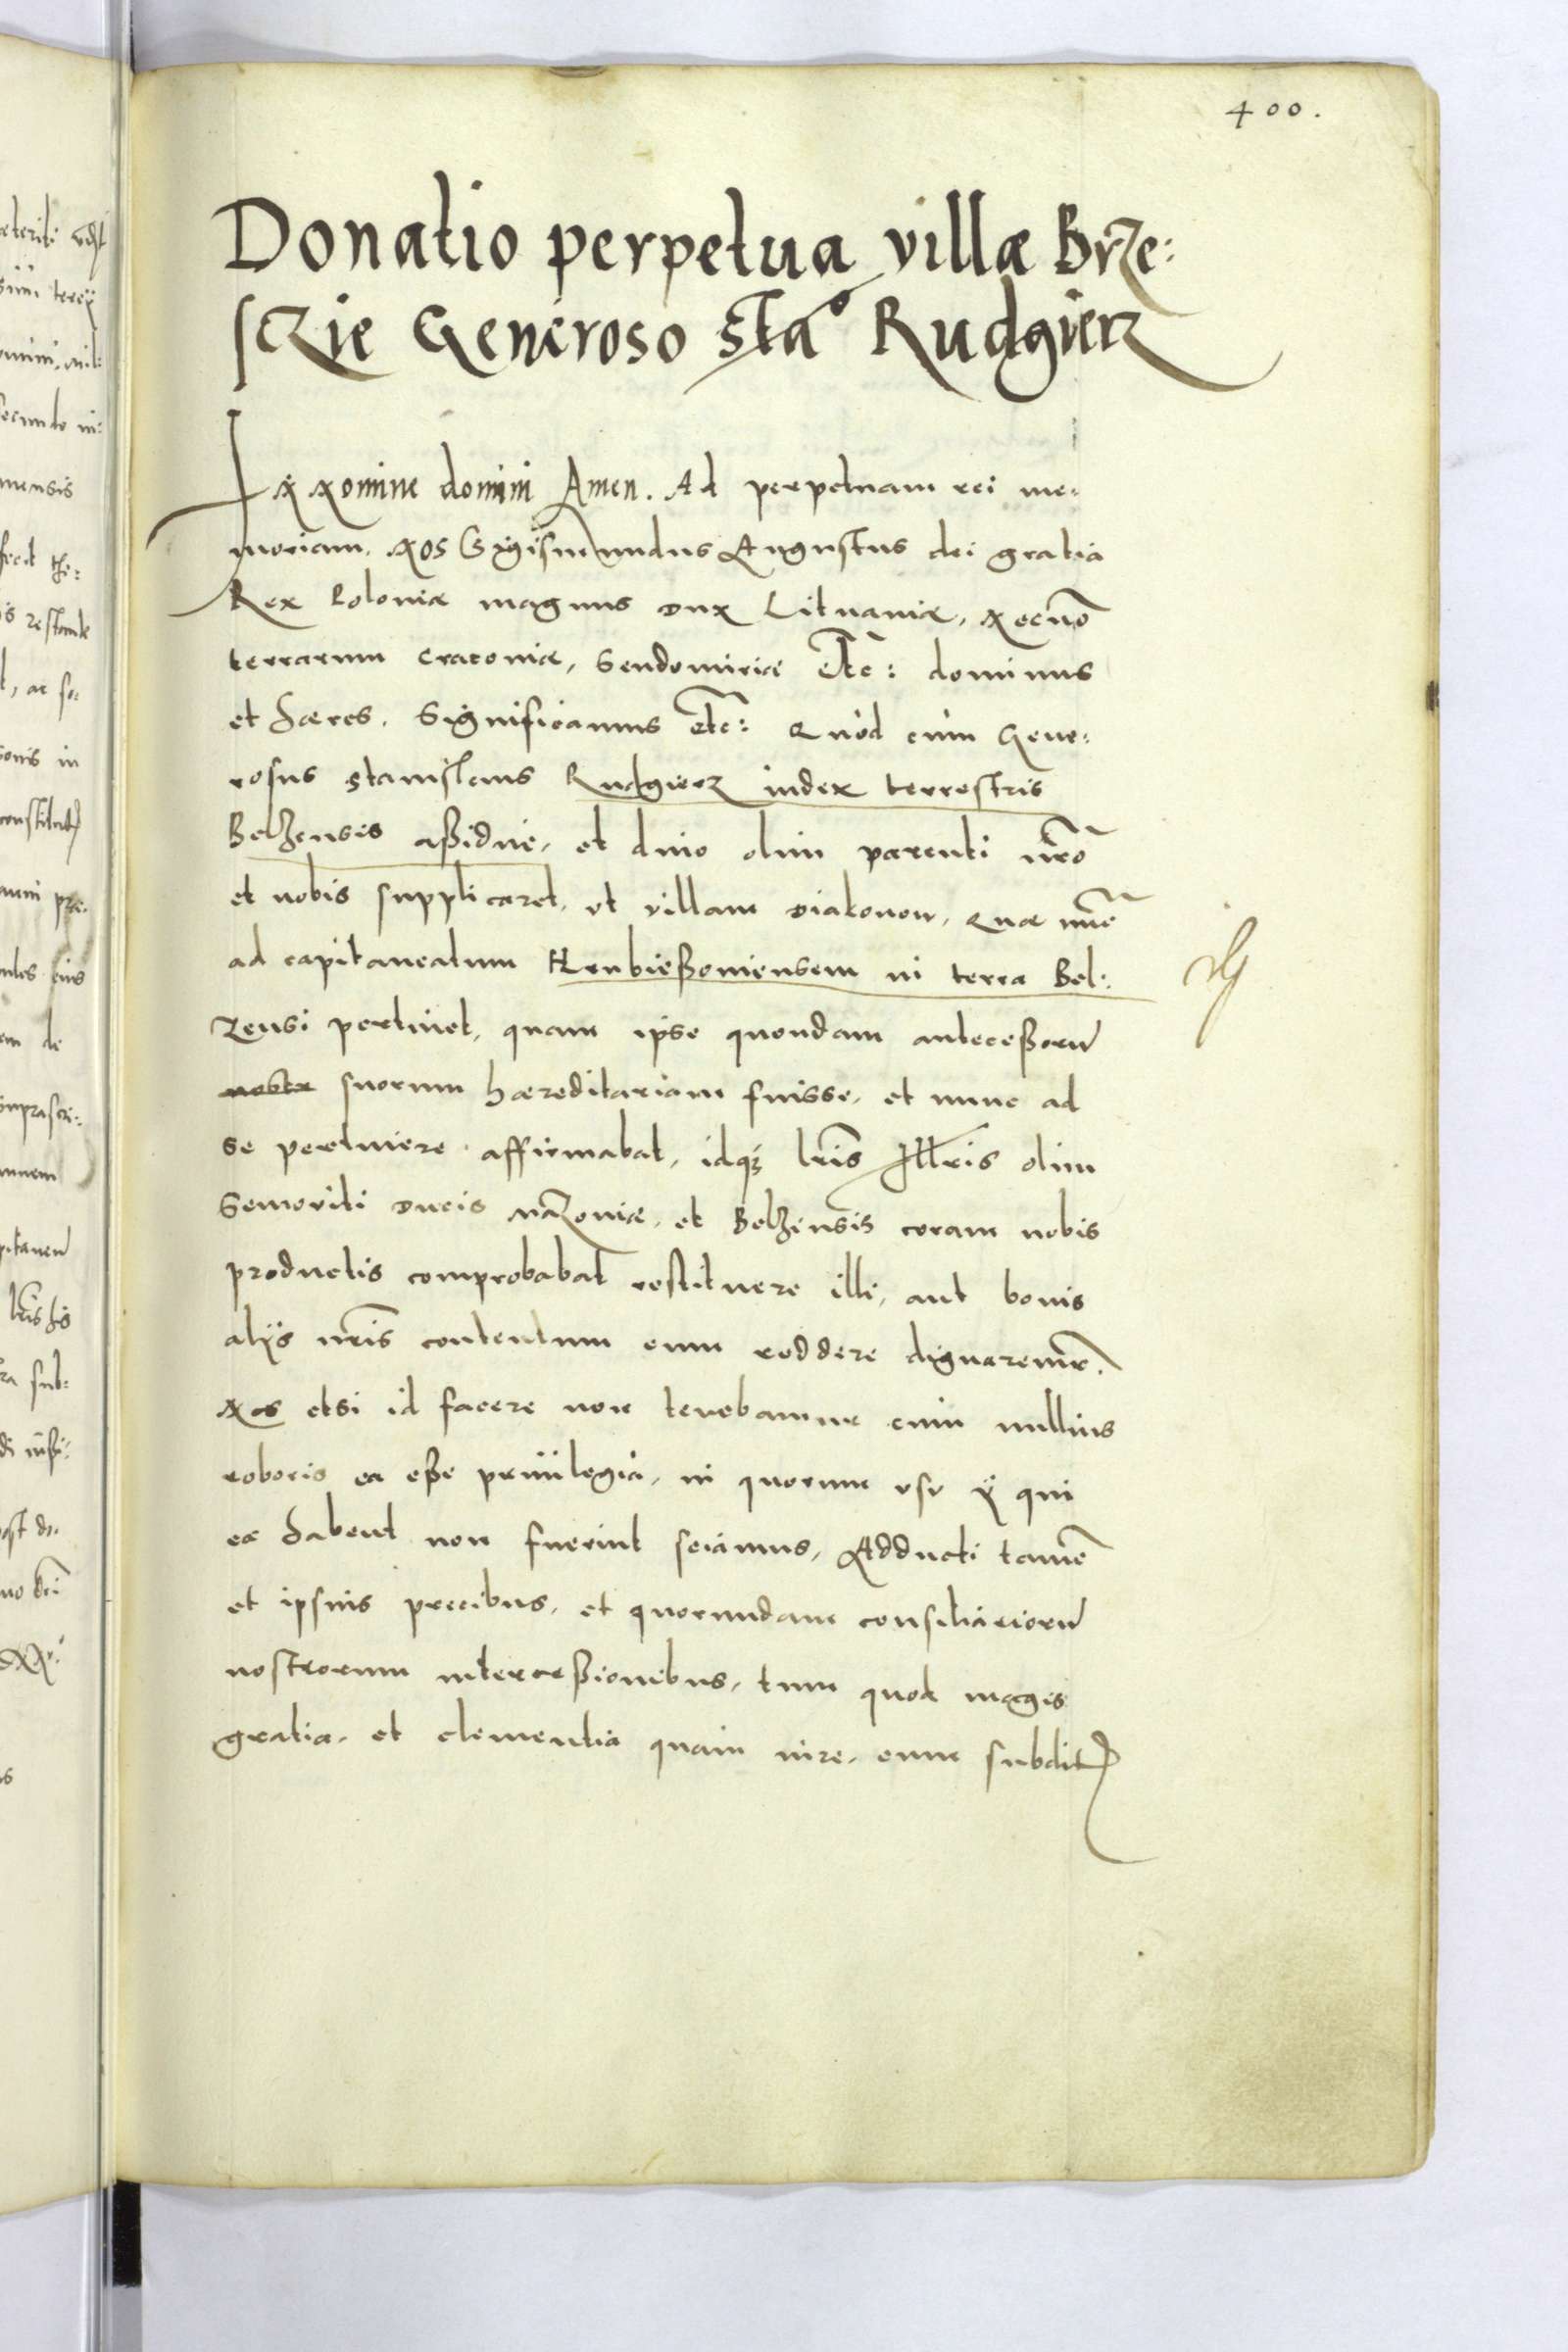 400.
Donatio perpetua villæ Brze:
sczie Generoso Sta° Rudgierz
In nomine domini Amen. Ad perpetuam rei me:
moriam. Nos Sigismundus Augustus dei gratia
Rex Poloniæ magnus Dux Lituaniæ, Necnō
terrarum Cracoviæ, Sendomiriæ etc: dominus
et hæres. Significamus etc: Quòd cùm Gene:
rosus Stanislaus Rudgierz iudex terrestris
Belzensis aßiduè, et divo olim parenti nr̃o
et nobis supplicaret, ut villam Diakonow, quæ nunc̃
ad capitaneatum Hrubießoviensem in terra Bel:
zensi pertinet, quam ipse quondam anteceßorũ
nobis suorum hæreditariam fuisse, et nunc ad
se pertinere affirmabat, idqз lr̃is Illr̃is olim
Semoviti Ducis Mazoviæ, et Belzensis coram nobis
productis comprobabat restituere illi, aut bonis
alijs nr̃is contentum eum reddere dignaremur.
Nos etsi id facere non tenebamur cum nullius
roboris ea eße privilegia, in quorum usu ij qui
ea habent non fuerint sciamus, Adducti tamē
et ipsius precibus, et quorundam consiliariorũ
nostrorum interceßionibus, tum quod magis
gratia, et clementia quàm iure, cum subditis